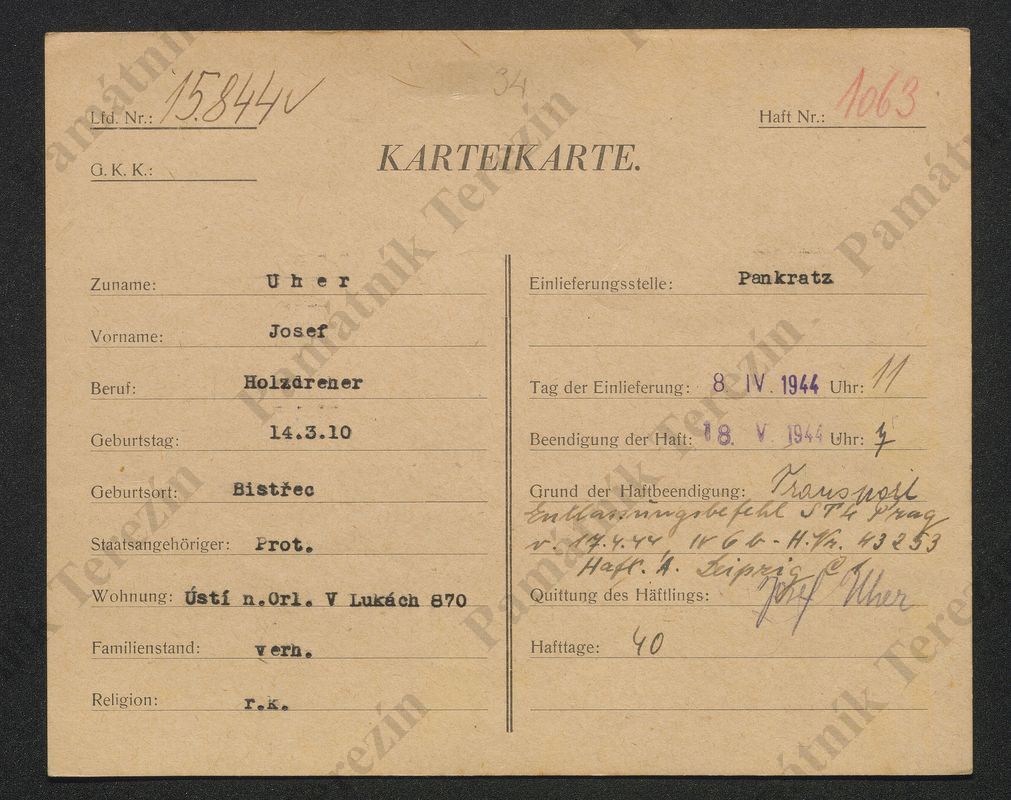 34
Lfd. Nr.: 15.844
Haft Nr.: 1063
G. K. K.:
KARTEIKARTE.
Zuname: Uher
Vorname: Josef
Beruf: Holzdreher
Geburtstag: 14.3.10
Geburtsort: Bistřec
Staatsangehöriger: Prot.
Wohnung: Ústí n.Orl. V Lukách 870
Familienstand: verh.
Religion: r.k.
Einlieferungsstelle: Pankratz
Tag der Einlieferung: 8 IV. 1944 Uhr: 11
Beendigung der Haft: 18. V. 1944 Uhr:
Grund der Haftbeendigung: Transport
Entlassungsbefehl STL Prag
v. 17.4.44, IV 6 b - H.Nr. 43253
Haft. A. Leipzig C 1
Quittung des Häftlings: Josef Uher
Hafttage: 40
Památník Terezín